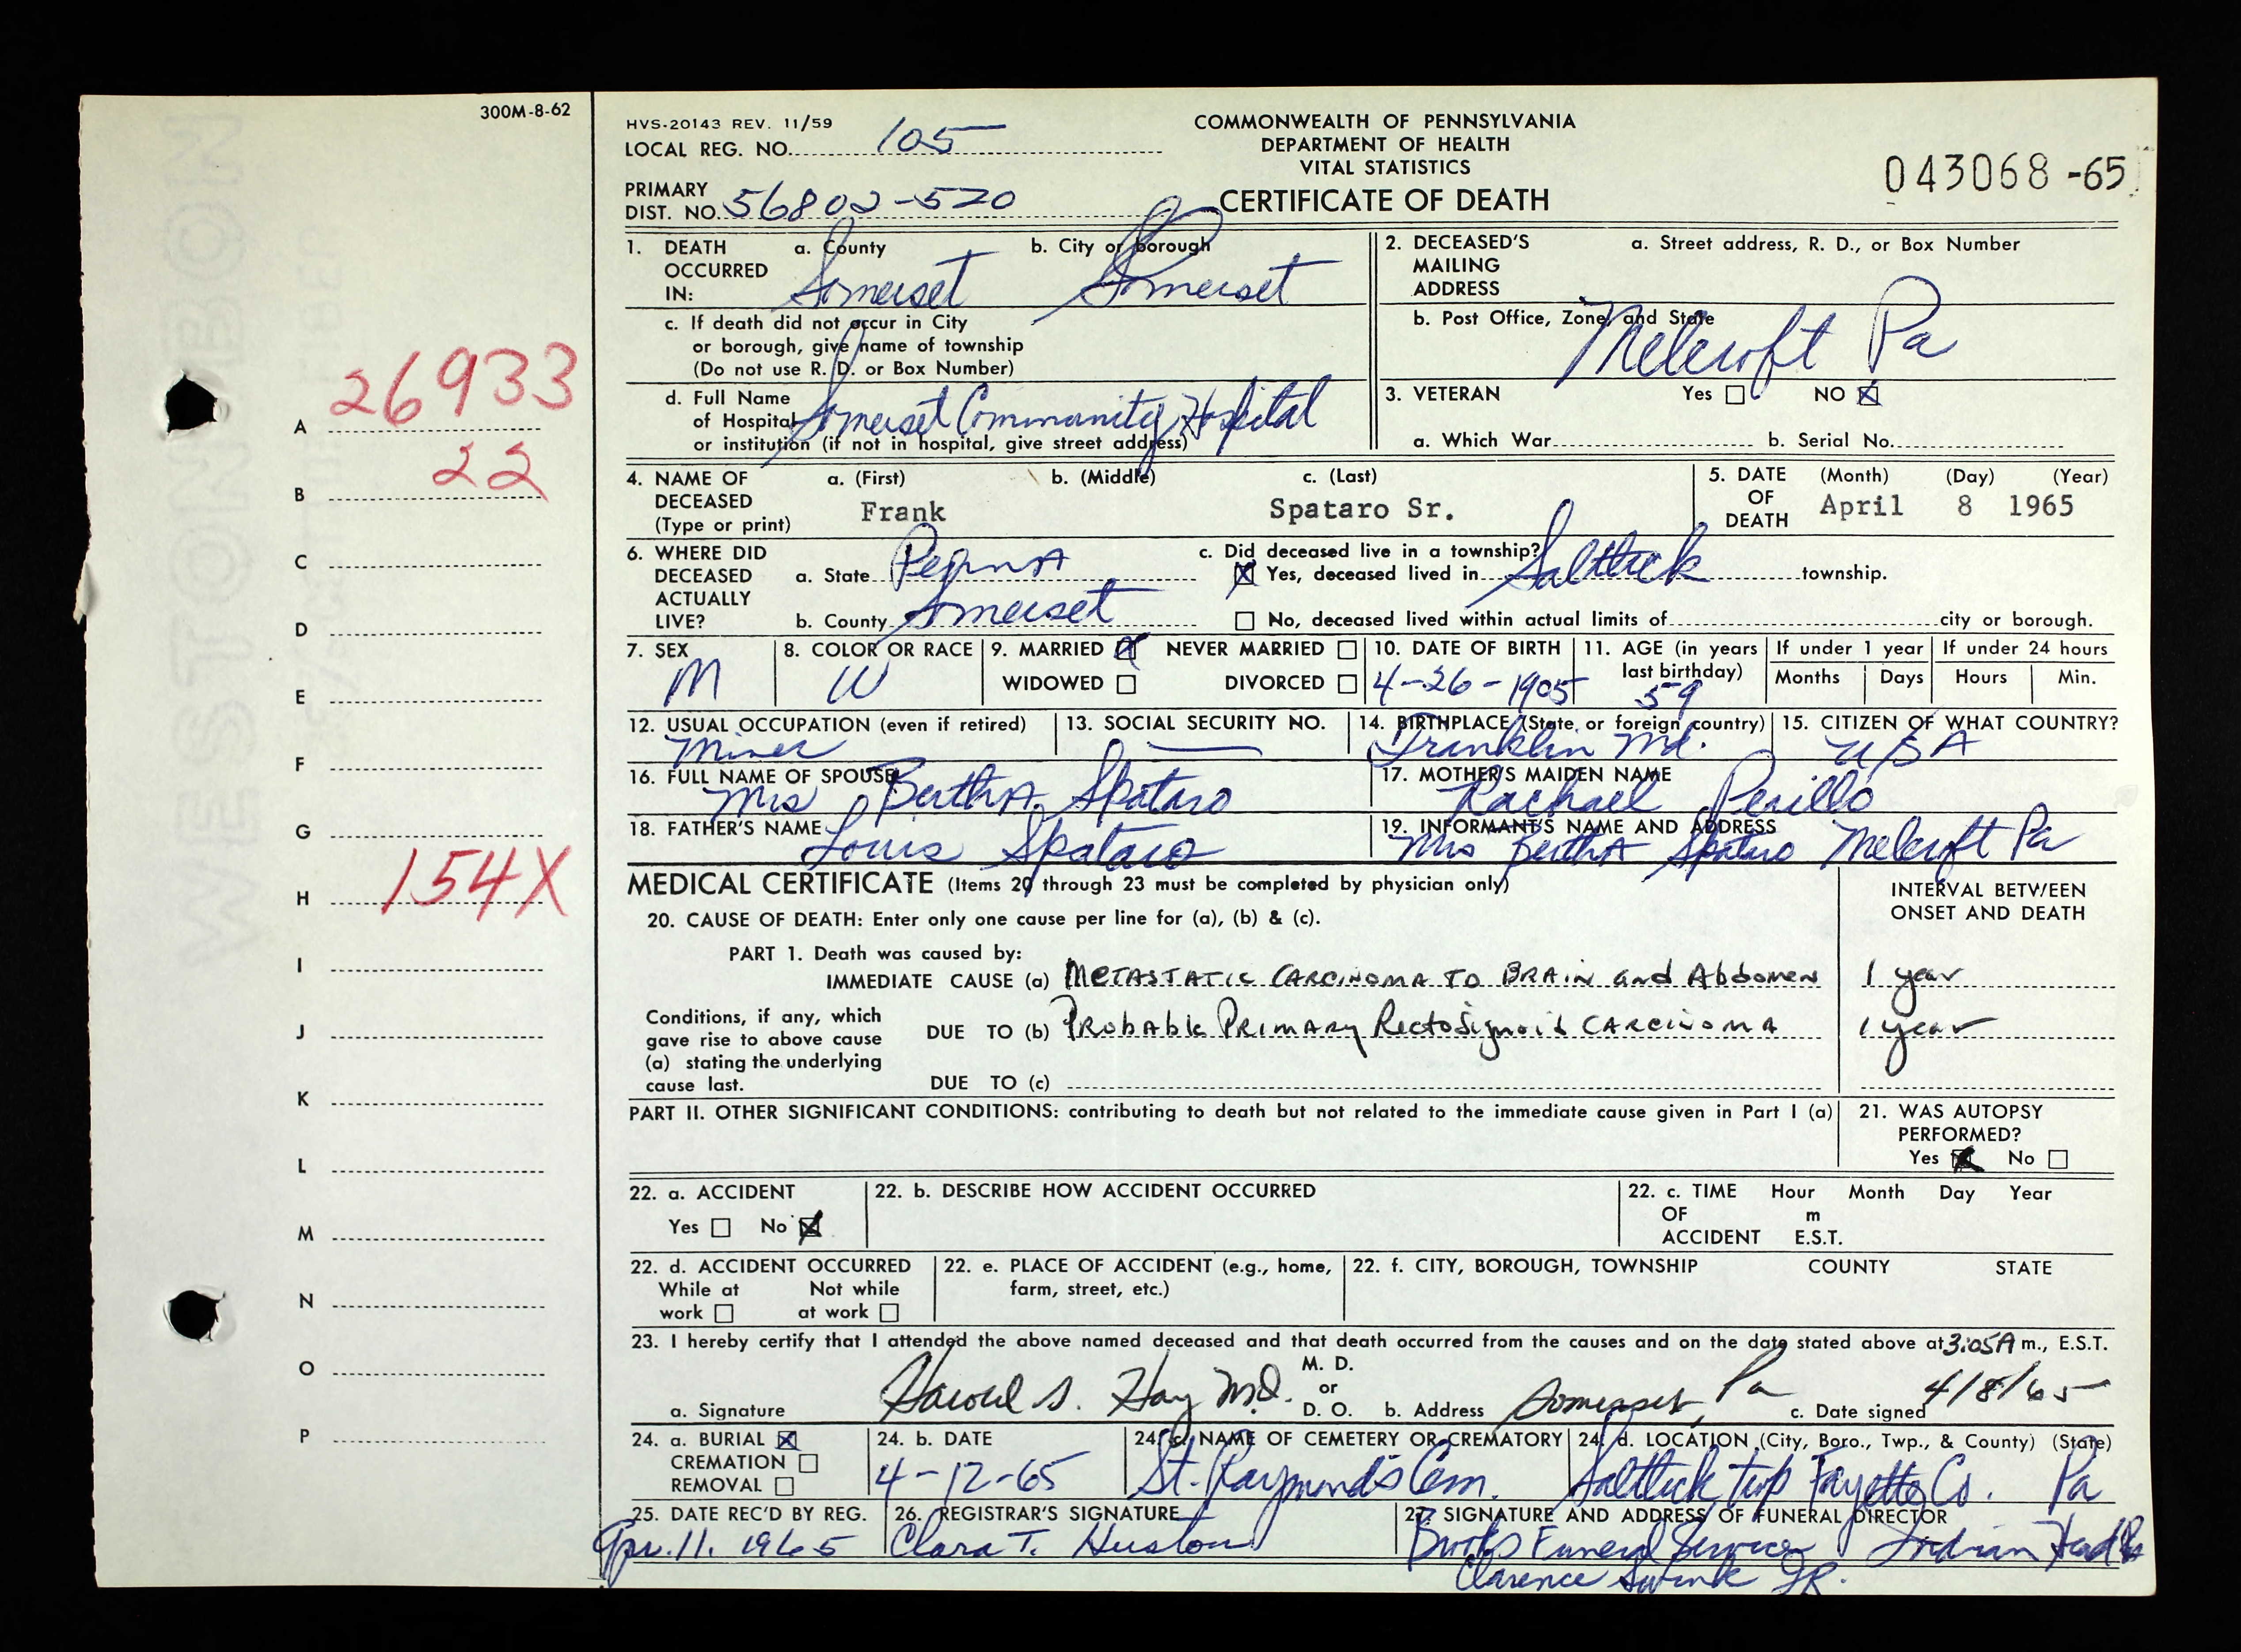 300M-8-62
HVS-20143 REV. 11/59
LOCAL REG. NO. 105
COMMONWEALTH OF PENNSYLVANIA
DEPARTMENT OF HEALTH
VITAL STATISTICS
CERTIFICATE OF DEATH
043068 -65
PRIMARY
DIST. NO. 56802-520
1. DEATH OCCURRED IN: a. County Somerset b. City or borough Somerset
c. If death did not occur in City
or borough, give name of township
(Do not use R. D. or Box Number)
d. Full Name
of Hospital Somerset Community Hospital
or institution (if not in hospital, give street address)
2. DECEASED'S MAILING ADDRESS a. Street address, R. D., or Box Number
b. Post Office, Zone, and State
Melcroft Pa
3. VETERAN Yes NO X
a. Which War b. Serial No.
4. NAME OF DECEASED (Type or print) a. (First) b. (Middle) c. (Last)
Frank Spataro Sr.
5. DATE OF DEATH (Month) (Day) (Year)
April 8 1965
6. WHERE DID DECEASED ACTUALLY LIVE?
a. State Penna
b. County Somerset
c. Did deceased live in a township?
X Yes, deceased lived in Saltlick township.
No, deceased lived within actual limits of city or borough.
7. SEX M
8. COLOR OR RACE W
9. MARRIED X NEVER MARRIED
WIDOWED DIVORCED
10. DATE OF BIRTH 4-26-1905
11. AGE (in years last birthday) 59
If under 1 year Months Days
If under 24 hours Hours Min.
12. USUAL OCCUPATION (even if retired) Miner
13. SOCIAL SECURITY NO. —
14. BIRTHPLACE (State or foreign country) Franklin Md.
15. CITIZEN OF WHAT COUNTRY? USA
16. FULL NAME OF SPOUSE Mrs Bertha Spataro
17. MOTHER'S MAIDEN NAME Rachael Perillo
18. FATHER'S NAME Louis Spataro
19. INFORMANT'S NAME AND ADDRESS Mrs Bertha Spataro Melcroft Pa
MEDICAL CERTIFICATE (Items 20 through 23 must be completed by physician only)
INTERVAL BETWEEN
ONSET AND DEATH
20. CAUSE OF DEATH: Enter only one cause per line for (a), (b) & (c).
PART 1. Death was caused by:
IMMEDIATE CAUSE (a) Metastatic Carcinoma to Brain and Abdomen 1 year
Conditions, if any, which
gave rise to above cause
(a) stating the underlying
cause last.
DUE TO (b) Probable Primary Rectosigmoid Carcinoma 1 year
DUE TO (c)
PART II. OTHER SIGNIFICANT CONDITIONS: contributing to death but not related to the immediate cause given in Part I (a)
21. WAS AUTOPSY
PERFORMED?
Yes X No
22. a. ACCIDENT
Yes No X
22. b. DESCRIBE HOW ACCIDENT OCCURRED
22. c. TIME OF ACCIDENT Hour Month Day Year
m
E.S.T.
22. d. ACCIDENT OCCURRED
While at work Not while at work
22. e. PLACE OF ACCIDENT (e.g., home,
farm, street, etc.)
22. f. CITY, BOROUGH, TOWNSHIP COUNTY STATE
23. I hereby certify that I attended the above named deceased and that death occurred from the causes and on the date stated above at 3:05A m., E.S.T.
a. Signature Harold S. Hay M.D. M. D. or D. O.
b. Address Somerset, Pa
c. Date signed 4/8/65
24. a. BURIAL X
CREMATION
REMOVAL
24. b. DATE
4-12-65
24. c. NAME OF CEMETERY OR CREMATORY
St. Raymond's Cem.
24. d. LOCATION (City, Boro., Twp., & County) (State)
Saltlick twp Fayette Co. Pa
25. DATE REC'D BY REG.
Apr. 11. 1965
26. REGISTRAR'S SIGNATURE
Clara T. Huston
27. SIGNATURE AND ADDRESS OF FUNERAL DIRECTOR
Brooks Funeral Service Indian Head Pa
Clarence Swink JR.
A 26933
B 22
C
D
E
F
G
H 154X
I
J
K
L
M
N
O
P